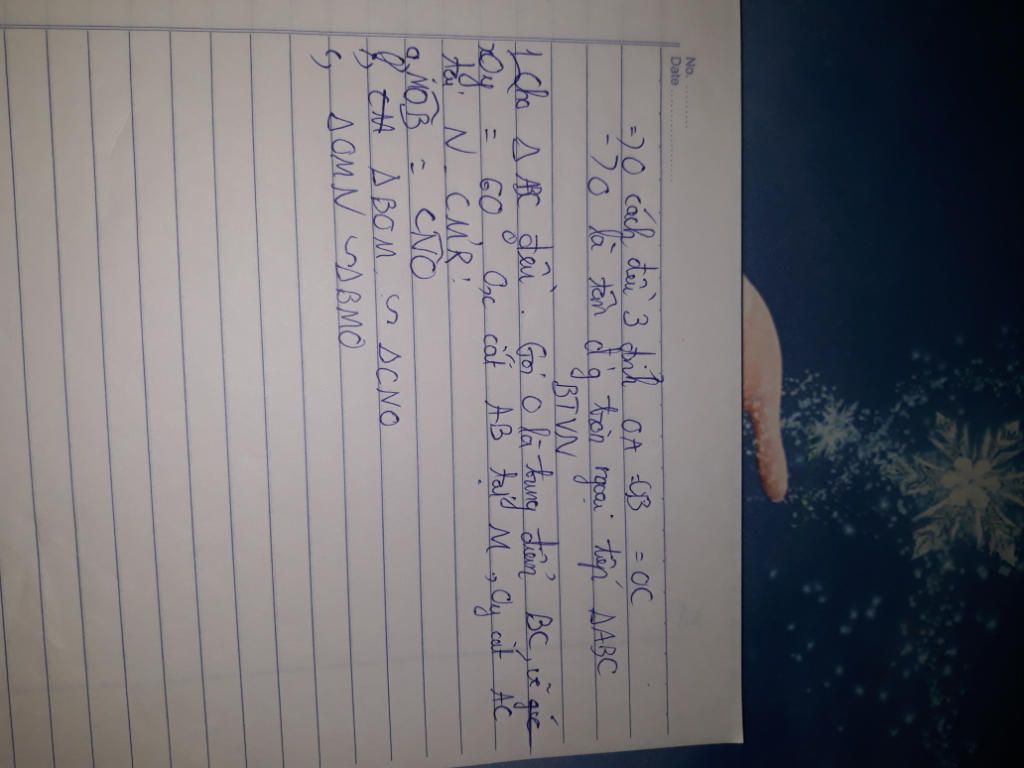 No. ..........
Date ..........
=) O cách đều 3 đỉnh OA = OB = OC
=) O là tâm đg tròn ngoại tiếp ΔABC
BTVN
1 Cho Δ ABC đều. Gọi O là trung điểm BC, vẽ góc
xOy = 60° Ox cắt AB tại M, Oy cắt AC
tại N. CMR:
a, MOB = CNO
b, ΔBOM ∽ ΔCNO
c, ΔOMN ∽ ΔBMO